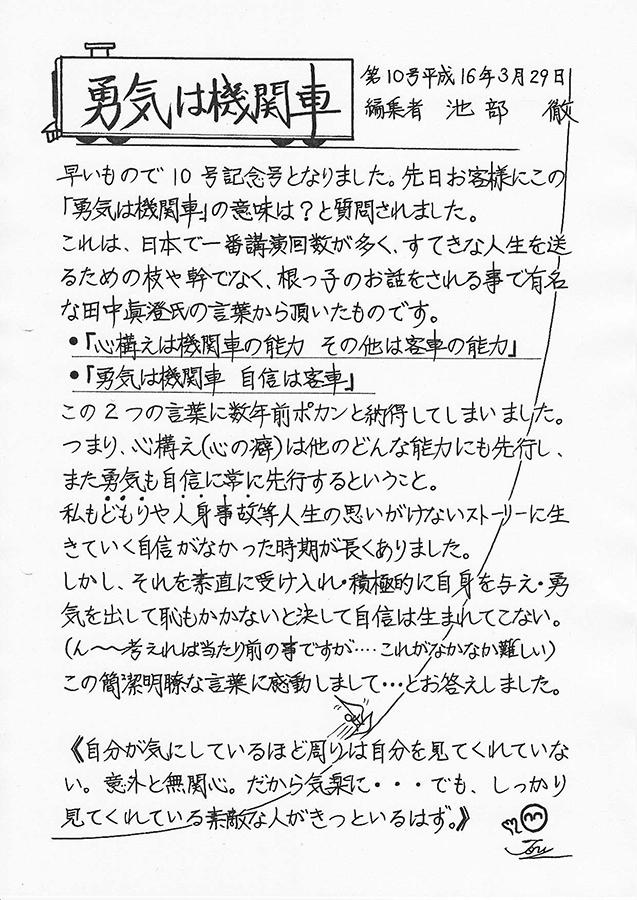 勇気は機関車
第10号平成16年3月29日
編集者 池部 徹
早いもので10号記念号となりました。先日お客様にこの
「勇気は機関車」の意味は?と質問されました。
これは、日本で一番講演回数が多く、すてきな人生を送
るための枝や幹でなく、根っ子のお話をされる事で有名
な田中眞澄氏の言葉から頂いたものです。
•「心構えは機関車の能力 その他は客車の能力」
•「勇気は機関車 自信は客車」
この2つの言葉に数年前ポカンと納得してしまいました。
つまり、心構え(心の癖)は他のどんな能力にも先行し、
また勇気も自信に常に先行するということ。
私もどもりや人身事故等人生の思いがけないストーリーに生
きていく自信がなかった時期が長くありました。
しかし、それを素直に受け入れ・積極的に自身を与え・勇
気を出して恥もかかないと決して自信は生まれてこない。
(ん〜〜考えれば当たり前の事ですが‥‥これがなかなか難しい)
この簡潔明瞭な言葉に感動しまして…とお答えしました。
《自分が気にしているほど周りは自分を見てくれていな
い。意外と無関心。だから気楽に・・・でも、しっかり
見てくれている素敵な人がきっといるはず。》